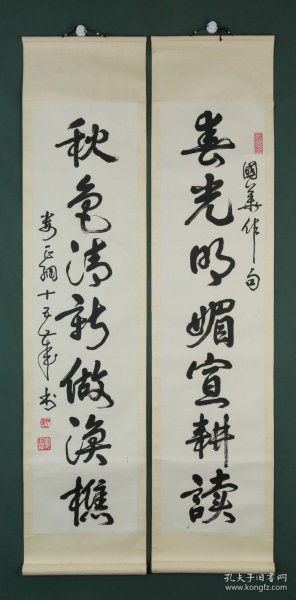 春光明媚宣耕讀
國華作句
秋色清新做漁樵
婁正綱十五岁書
孔夫子旧书网
www.kongfz.com